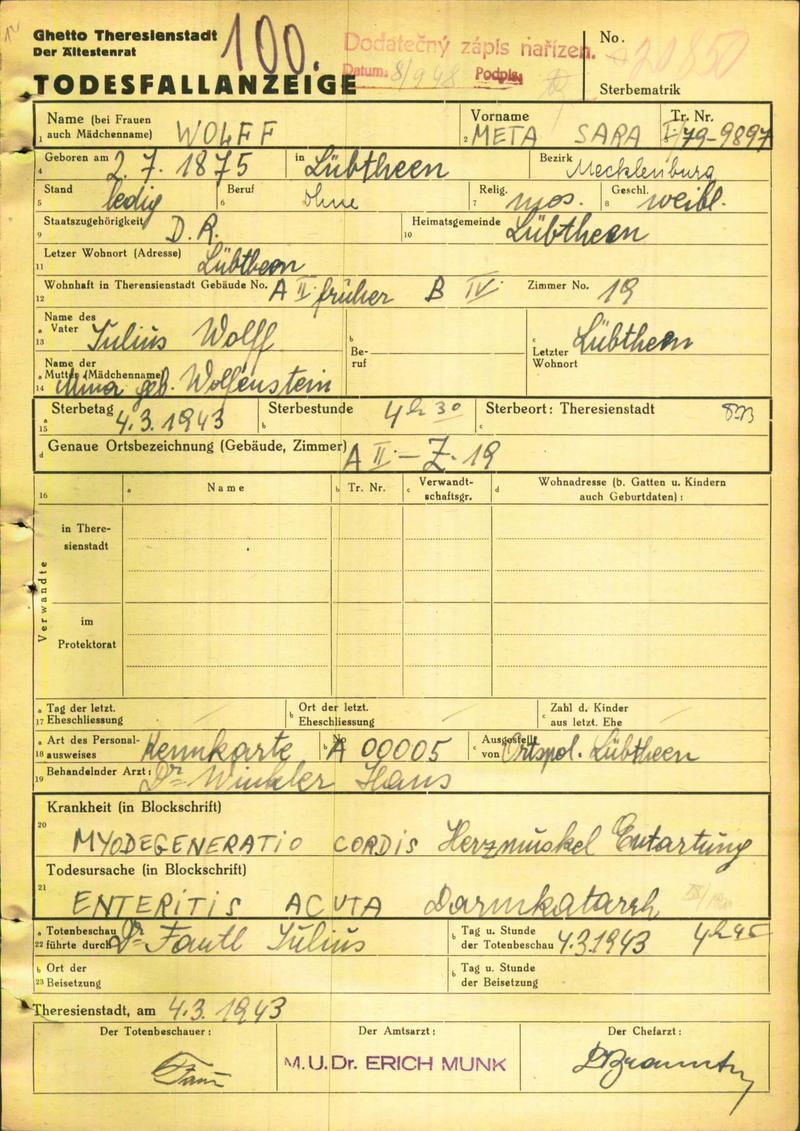 Ghetto Theresienstadt
Der Ältestenrat
100.
Dodatečný zápis nařízen.
Datum: 8/9 48 Podpis
No.
20850
TODESFALLANZEIGE
Sterbematrik
Name (bei Frauen
1 auch Mädchenname) WOLFF
Vorname
2 META SARA
Tr. Nr.
I-79-9897
4 Geboren am 2.7.1875 in Lübtheen Bezirk Mecklenburg
Stand
5 ledig
Beruf
6 ohne
Relig.
7 mos.
Geschl.
8 weibl.
Staatszugehörigkeit
9 D.R.
Heimatsgemeinde
10 Lübtheen
Letzer Wohnort (Adresse)
11 Lübtheen
Wohnhaft in Theresienstadt Gebäude No. A II früher B IV Zimmer No. 19
12
Name des
a Vater
13 Julius Wolff
b
Be-
ruf
c
Letzter
Wohnort Lübtheen
Name der
a Mutter (Mädchenname)
14 geb. Wolfenstein
a Sterbetag
15 4.3.1943
b Sterbestunde 4h 30
c Sterbeort: Theresienstadt
d Genaue Ortsbezeichnung (Gebäude, Zimmer) A II - Z. 19
16
a Name
b Tr. Nr.
c Verwandt-
schaftsgr.
d Wohnadresse (b. Gatten u. Kindern
auch Geburtdaten) :
Verwandte
in There-
sienstadt
im
Protektorat
a Tag der letzt.
17 Eheschliessung
b Ort der letzt.
Eheschliessung
c Zahl d. Kinder
aus letzt. Ehe
a Art des Personal-
18 ausweises Kennkarte
b No A 00005
c Ausgestellt
von Ortspol. Lübtheen
19 Behandelnder Arzt: Dr Winkler Hans
Krankheit (in Blockschrift)
20 MYODEGENERATIO CORDIS Herzmuskel Entartung
Todesursache (in Blockschrift)
21 ENTERITIS ACUTA Darmkatarrh
a Totenbeschau
22 führte durch Dr Fantl Julius
b Tag u. Stunde
der Totenbeschau 4.3.1943 4h 45
b Ort der
23 Beisetzung
b Tag u. Stunde
der Beisetzung
Theresienstadt, am 4.3.1943
Der Totenbeschauer :
Der Amtsarzt :
Der Chefarzt :
M.U.Dr. ERICH MUNK